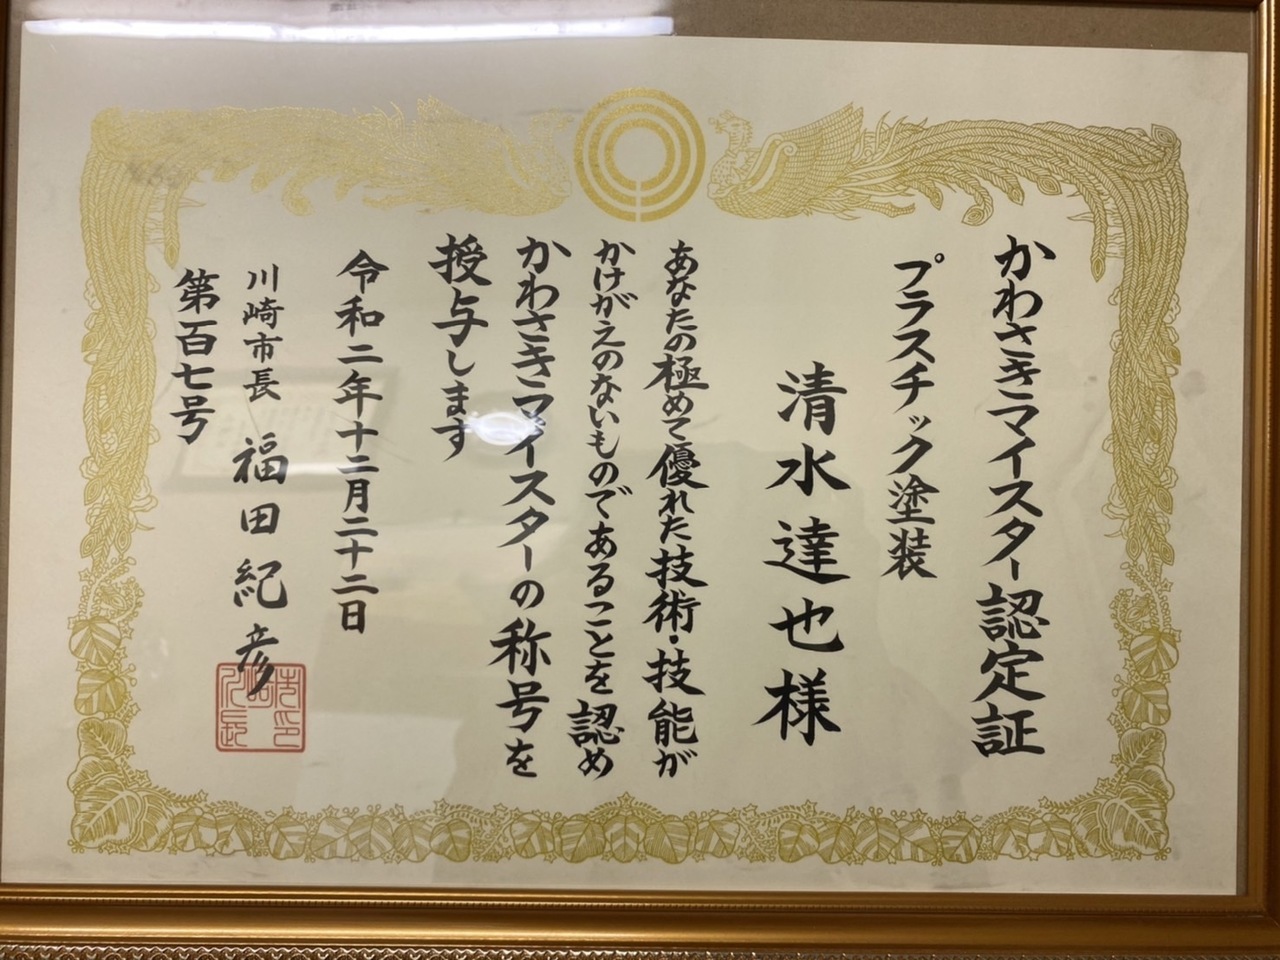 かわさきマイスター認定証
プラスチック塗装
清水達也様
あなたの極めて優れた技術・技能が
かけがえのないものであることを認め
かわさきマイスターの称号を
授与します
令和二年十二月二十二日
川崎市長 福田紀彦
第百七号